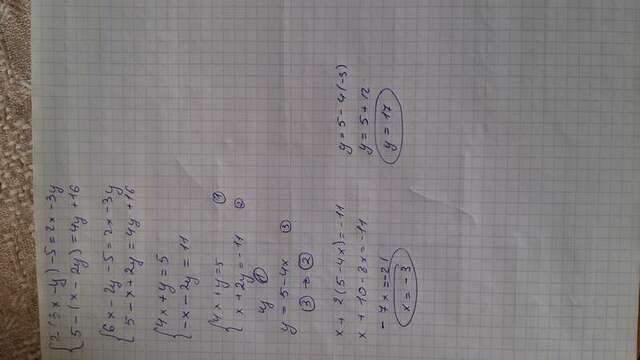 2(3x-y)-5=2x-3y
5-(x-2y)=4y+16
6x-2y-5=2x-3y
5-x+2y=4y+16
4x+y=5
-x-2y=11
4x+y=5 ①
x+2y=-11 ②
①
y=5-4x ③
③ → ②
x+2(5-4x)=-11
x+10-8x=-11
-7x=-21
x=-3
y=5-4(-3)
y=5+12
y=17